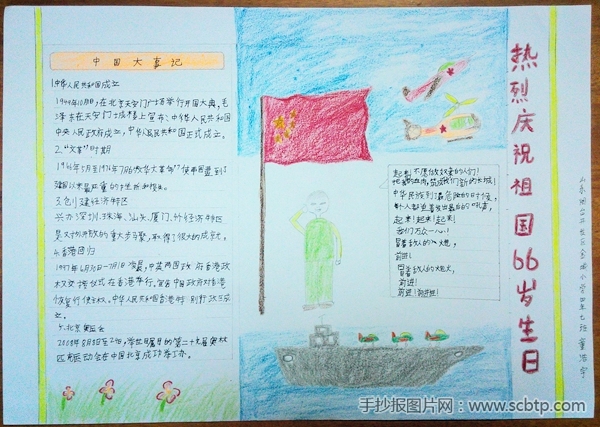 中国大事记
1.中华人民共和国成立
1949年10月1日,在北京天安门广场举行开国大典,毛
泽东在天安门城楼上宣布:中华人民共和国
中央人民政府成立,中华人民共和国正式成立。
2."文革"时期
1966年5月至1976年
3.创建经济特区
兴办深圳、珠海、汕头、厦门
是对外开放的重大步骤,取得了很大的成就。
4.香港回归
1997年6月30日-7月1日凌晨,中英两国政府香港政
权交接仪式在香港举行,宣告中国政府对香港
恢复行使主权。中华人民共和国香港特别行政区成
立。
5.北京奥运会
2008年8月8日至24日,举世瞩目的第二十九届奥林
匹克运动会在中国北京成功举办。
起来!不愿做奴隶的人们!
把我们的血肉,筑成我们新的长城!
中华民族到了最危险的时候,
每个人都被迫着发出最后的吼声,
起来!起来!起来!
我们万众一心!
冒着敌人的炮火,
前进!
冒着敌人的炮火,
前进!
前进!前进!进!
热烈庆祝祖国66岁生日
手抄报图片网:www.scbtp.com